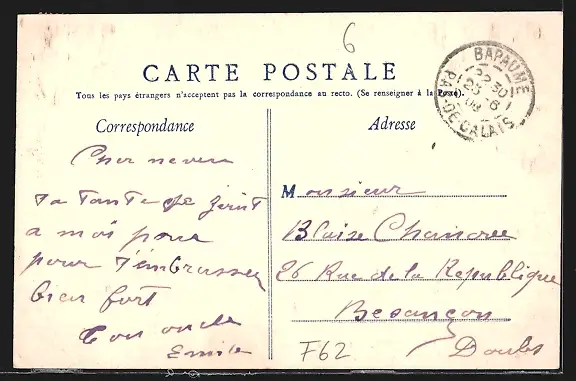 6
CARTE POSTALE
Tous les pays étrangers n'acceptent pas la correspondance au recto. (Se renseigner à la Poste).
BAPAUME
PAS-DE-CALAIS
Correspondance
Cher neveu
ta tante se joint
a moi pour
pour t'embrasser
bien fort
ton oncle
Emile
Adresse
Monsieur
Blaise
26 Rue de la Republique
Besançon
Doubs
F62